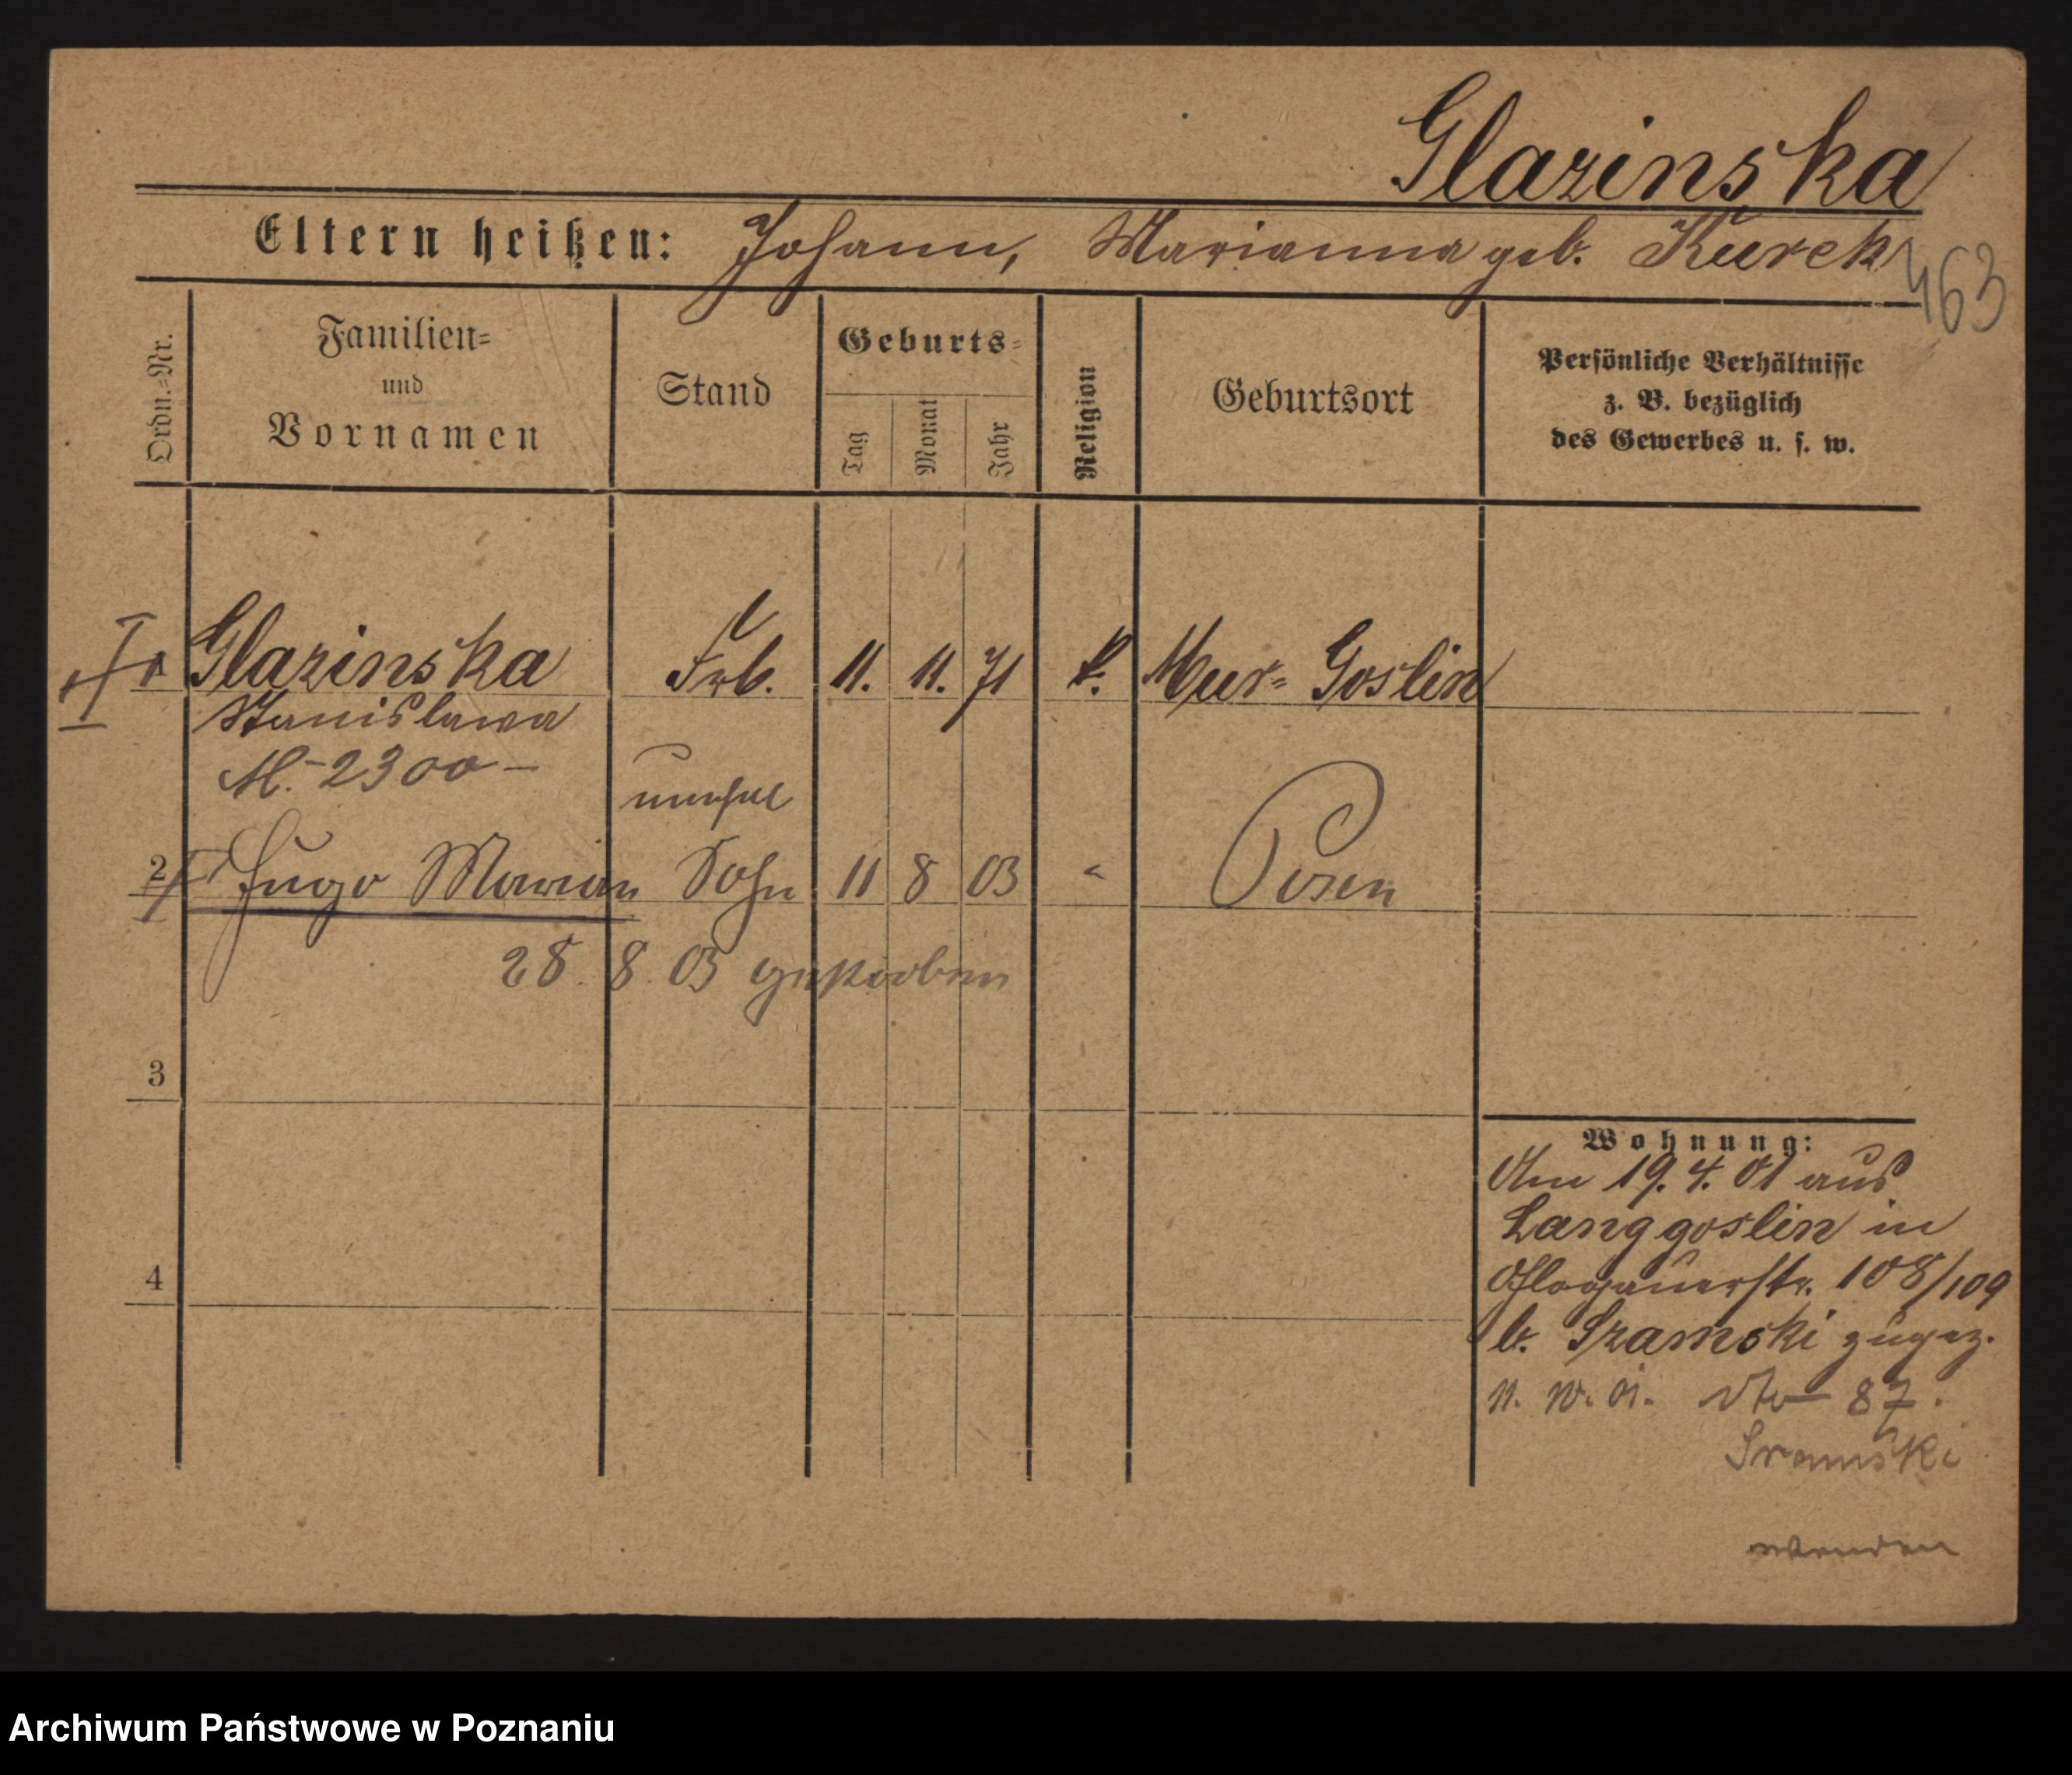 Glazinska
Eltern heißen: Johann, Marianna geb. Kurek
463
Ordn.-Nr.
Familien-
und
Vornamen
Stand
Geburts-
Tag
Monat
Jahr
Religion
Geburtsort
Persönliche Verhältnisse
z. B. bezüglich
des Gewerbes u. s. w.
Glazinska 11. 11. 71 k. Mur- Goslin
Stanislawa
M.-2300-
unehel
2 Hugo Marian Sohn 11 8 03 " Posen
28. 8. 03 gestorben
3
4
Wohnung:
Am 19. 4. 01 aus
Langgoslin in
Glogauerstr. 108/109
b. Szamski zugez.
87.
Sramski
wenden
Archiwum Państwowe w Poznaniu